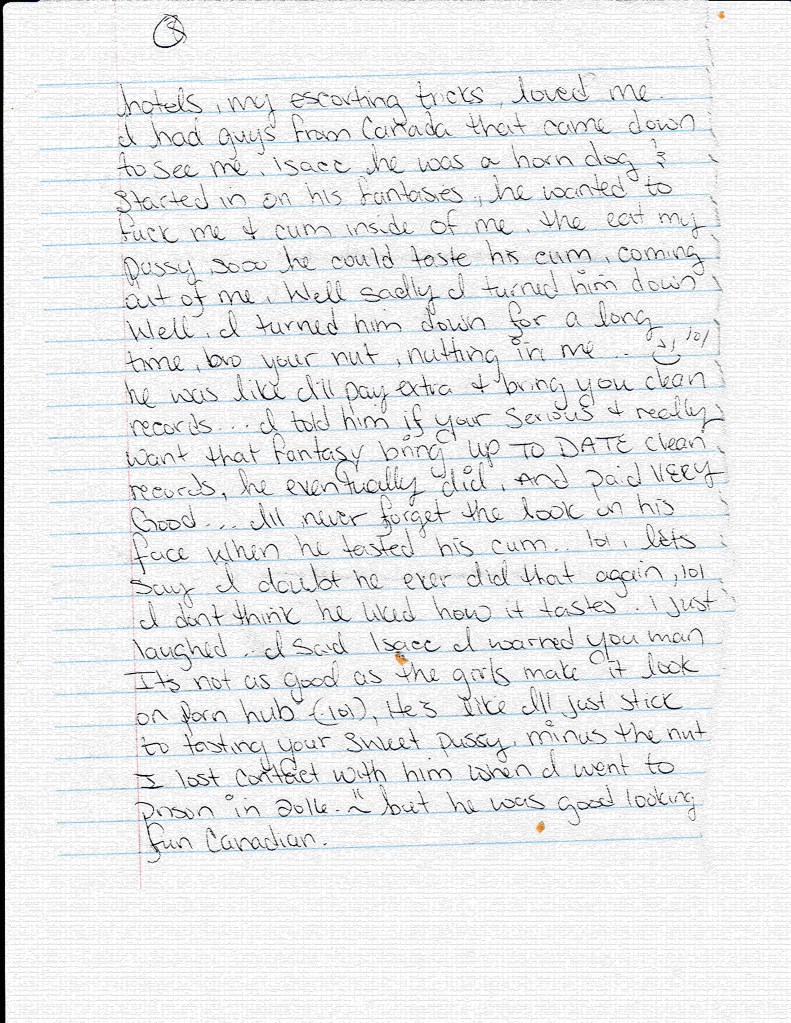 8
hotels, my escorting tricks, loved me.
I had guys from Canada that came down
to see me. isacc he was a horn dog &
Started in on his fantasies, he wanted to
fuck me & cum inside of me, the eat my
pussy, sooo he could taste his cum, coming
out of me. Well sadly I turned him down
Well, I turned him down for a long
time, bro your nut, nutting in me... lol
he was like I'll pay extra & bring you clean
records... I told him if your serious & really
want that fantasy bring up TO DATE clean
records, he eventually did. And paid VERY
Good... I'll never forget the look on his
face when he tasted his cum.. lol, lets
say I doubt he ever did that again, lol
I dont think he liked how it tastes. i just
laughed. I said Isacc I warned you man
Its not as good as the girls make it look
on Porn hub (lol), He's like I'll just stick
to tasting your sweet pussy, minus the nut
I lost contact with him when I went to
prison in 2016. but he was good looking
fun Canadian.